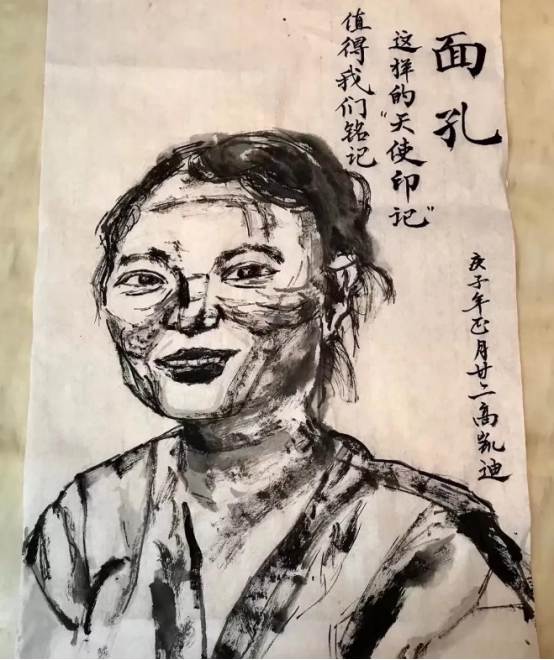 面孔
这样的“天使印记”
值得我们铭记
庚子年正月廿二高凯迪